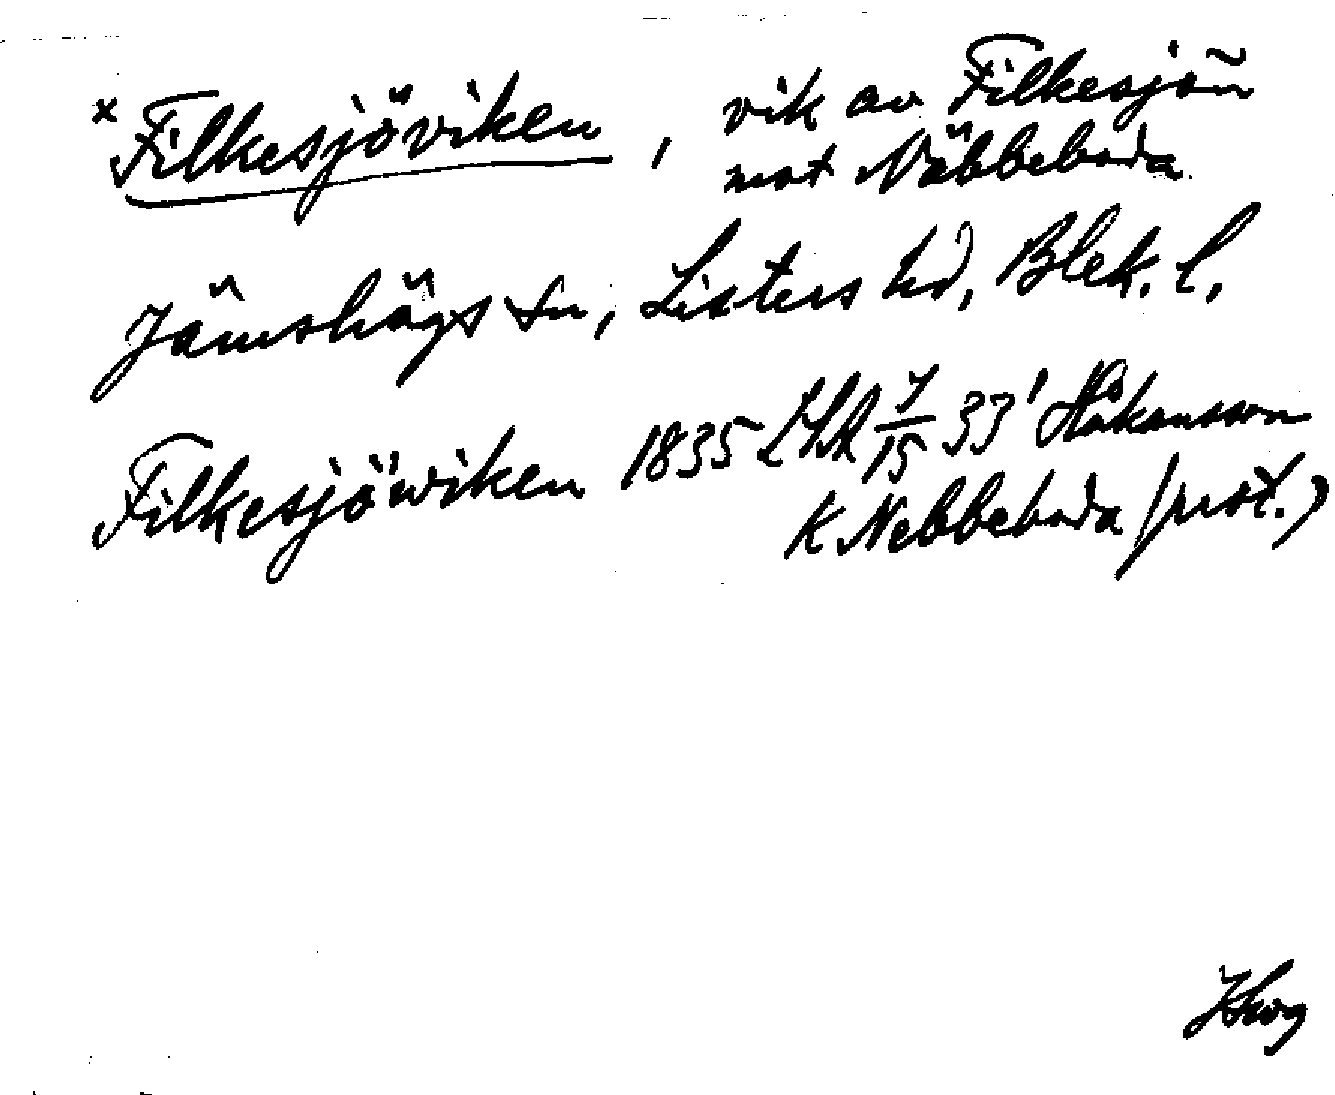 x Filkesjöviken, vik av Filkesjön
mot Näbbeboda
Jämshögs sn, Listers hd, Blek. l.
Filkesjöwiken 1835 LSA 7/15 33' Håkansson
K Nebbeboda (prot.)